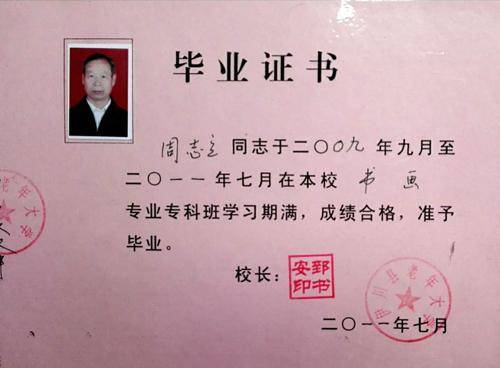 毕业证书
周志立 同志于二〇〇九年九月至
二〇一一年七月在本校 书画
专业专科班学习期满，成绩合格，准予
毕业。
校长：
郅书安印
县老年大学
二〇一一年七月
老年大学